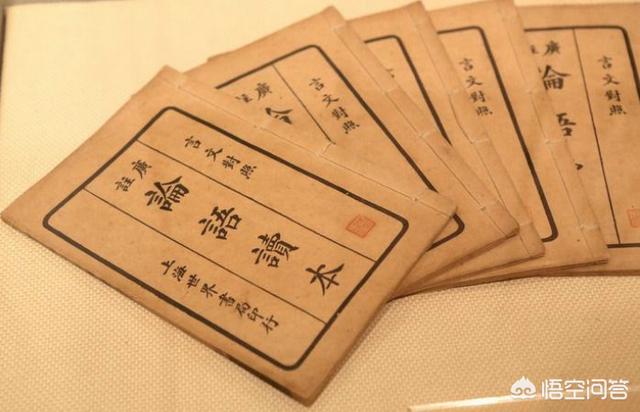 言文對照
廣註
論語讀本
上海世界書局印行
言文對照
廣註
言文對照
言文對照
廣註
論語
悟空问答